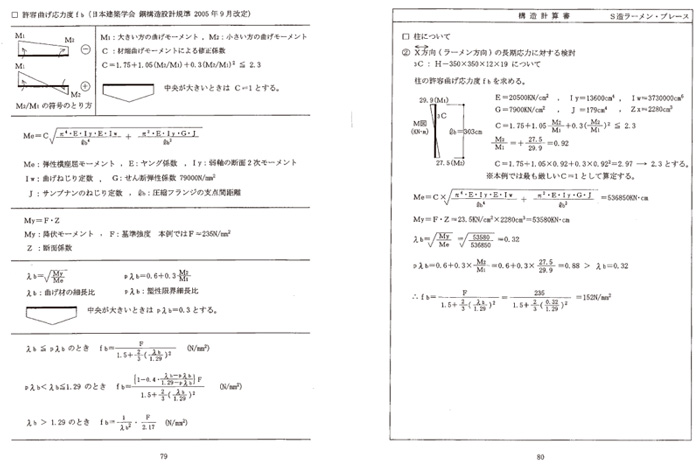 □ 許容曲げ応力度ｆｂ（日本建築学会 鋼構造設計規準 2005年9月改定）
M₁
M₂
M₁：大きい方の曲げモーメント，M₂：小さい方の曲げモーメント
C：材端曲げモーメントによる修正係数
C＝1.75＋1.05(M₂/M₁)＋0.3(M₂/M₁)² ≦ 2.3
M₁
M₂
中央が大きいときは C＝1とする。
M₂/M₁の符号のとり方
Me＝C√(π⁴・E・Iy・E・Iw/ℓb⁴ ＋ π²・E・Iy・G・J/ℓb²)
Me：弾性横座屈モーメント，E：ヤング係数，Iy：弱軸の断面2次モーメント
Iw：曲げねじり定数，G：せん断弾性係数 79000N/mm²
J：サンブナンのねじり定数，ℓb：圧縮フランジの支点間距離
My＝F・Z
My：降伏モーメント，F：基準強度 本例ではF＝235N/mm²
Z：断面係数
λb＝√(My/Me)　pλb＝0.6＋0.3 M₂/M₁
λb：曲げ材の細長比　pλb：塑性限界細長比
中央が大きいときは pλb＝0.3とする。
λb ≦ pλb のとき　fb＝F/(1.5＋2/3(λb/1.29)²)　(N/mm²)
pλb＜λb≦1.29 のとき　fb＝{1−0.4・(λb−pλb)/(1.29−pλb)}F/(1.5＋2/3(λb/1.29)²)　(N/mm²)
λb ＞ 1.29 のとき　fb＝1/λb²・F/2.17　(N/mm²)
79
構造計算書　S造ラーメン・ブレース
□ 柱について
② X方向（ラーメン方向）の長期応力に対する検討
₃C：H−350×350×12×19 について
柱の許容曲げ応力度ｆｂを求める。
29.9(M₁)
₃C
M図
(KN・m)
ℓb＝303cm
27.5(M₂)
E＝20500KN/cm²，Iy＝13600cm⁴，Iw＝3730000cm⁶
G＝7900KN/cm²，J＝179cm⁴，Zx＝2280cm³
C＝1.75＋1.05 M₂/M₁＋0.3(M₂/M₁)² ≦ 2.3
M₂/M₁＝＋27.5/29.9＝0.92
C＝1.75＋1.05×0.92＋0.3×0.92²＝2.97 → 2.3とする。
※本例では最も厳しいC＝1として算定する。
Me＝C×√(π⁴・E・Iy・E・Iw/ℓb⁴ ＋ π²・E・Iy・G・J/ℓb²)＝536850KN・cm
My＝F・Z＝23.5KN/cm²×2280cm³＝53580KN・cm
λb＝√(My/Me)＝√(53580/536850)＝0.32
pλb＝0.6＋0.3×M₂/M₁＝0.6＋0.3×27.5/29.9＝0.88 ＞ λb＝0.32
∴fb＝F/(1.5＋2/3(λb/1.29)²)＝235/(1.5＋2/3(0.32/1.29)²)＝152N/mm²
80